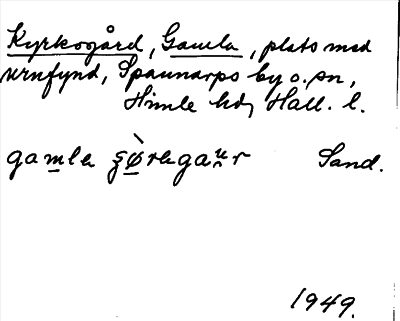 Kyrkogård, Gamla, plats med
urnfynd, Spannarps by o. sn,
Himle hd, Hall. l.
gamla Sand.
1949.